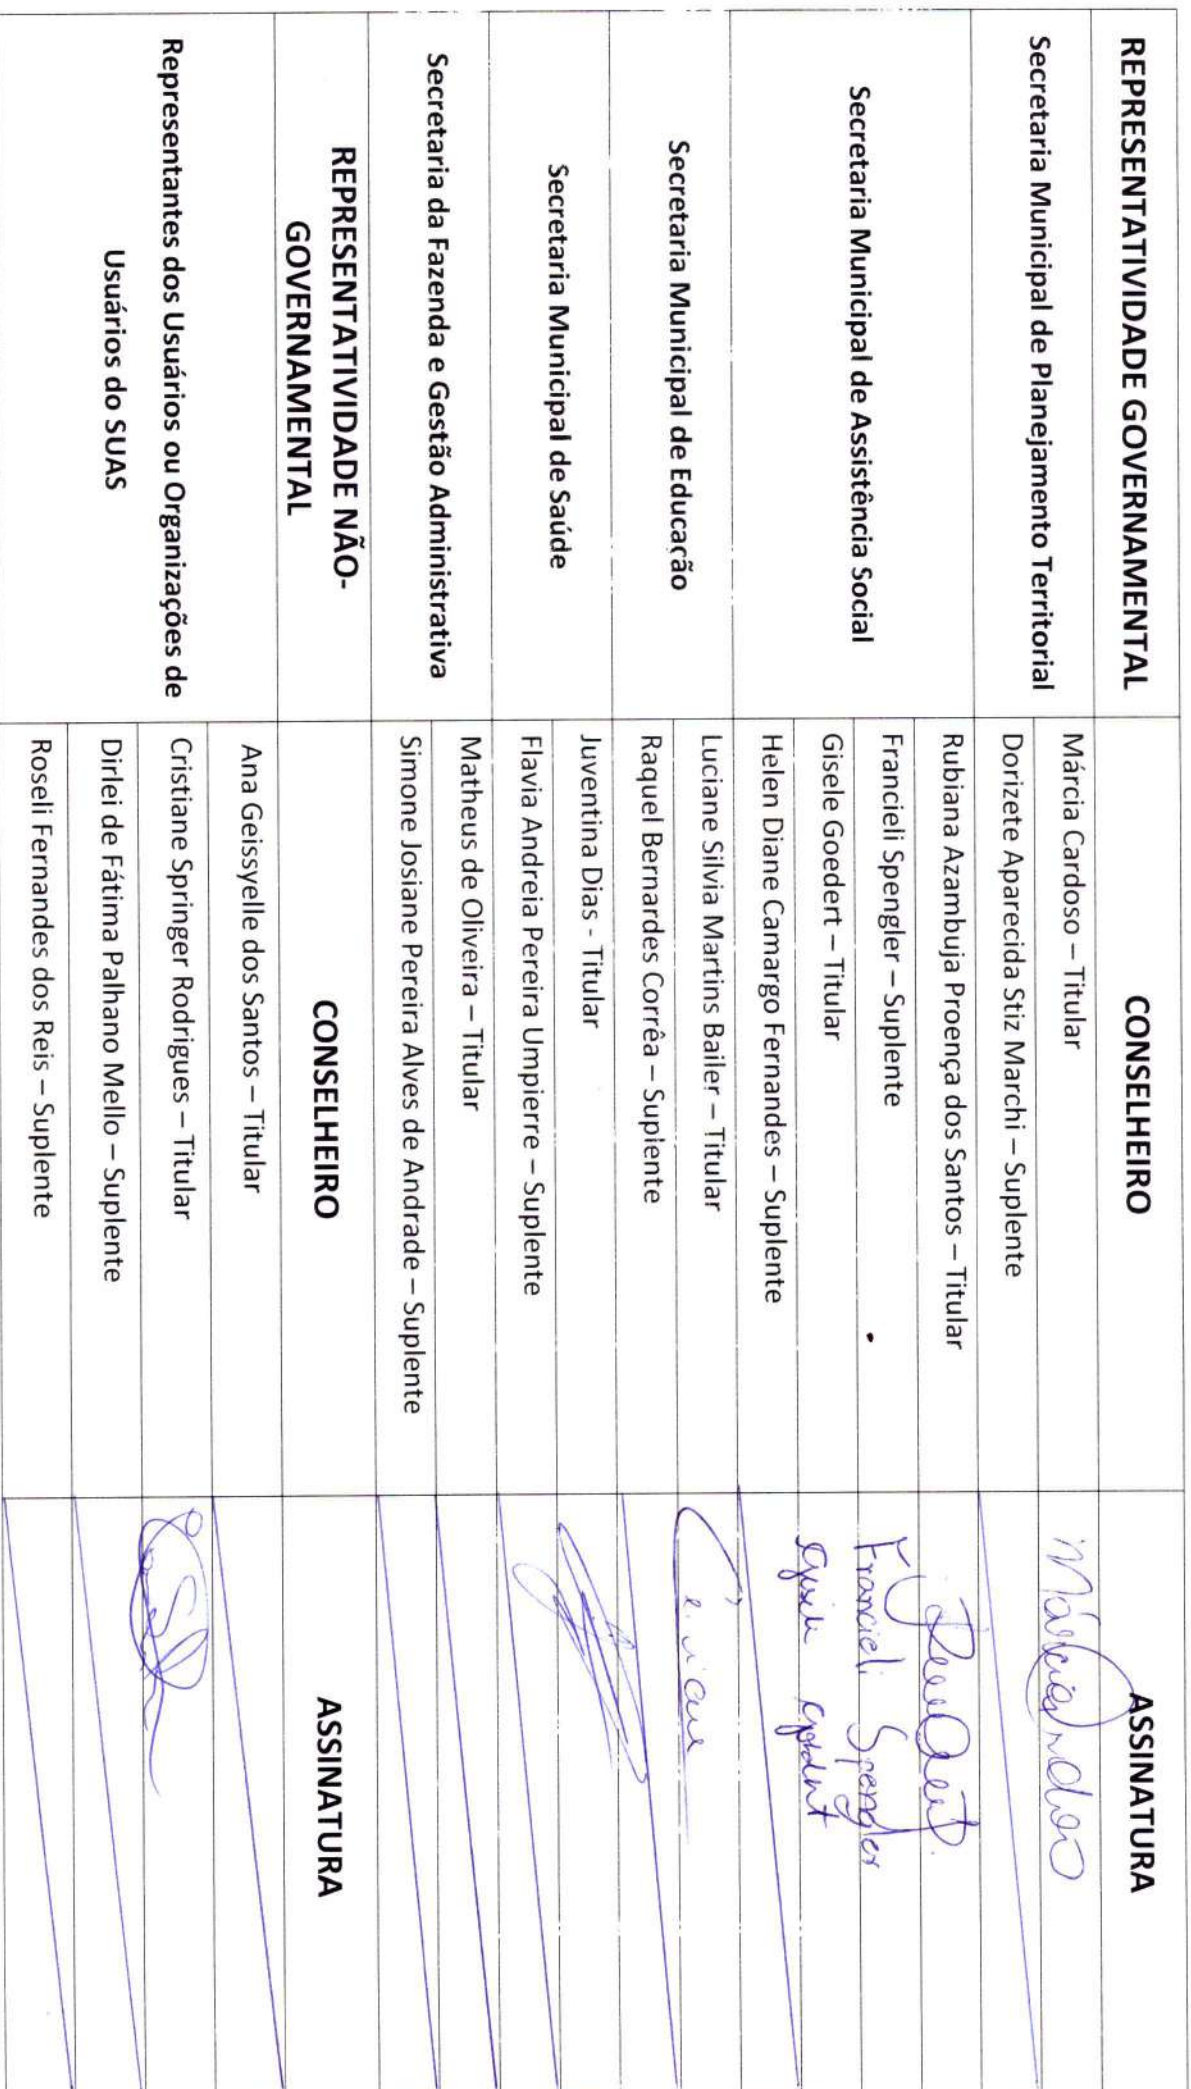 REPRESENTATIVIDADE GOVERNAMENTAL CONSELHEIRO ASSINATURA
Secretaria Municipal de Planejamento Territorial
Márcia Cardoso – Titular
Dorizete Aparecida Stiz Marchi – Suplente
Secretaria Municipal de Assistência Social
Rubiana Azambuja Proença dos Santos – Titular
Francieli Spengler – Suplente Francieli Spengler
Gisele Goedert – Titular
Helen Diane Camargo Fernandes – Suplente
Secretaria Municipal de Educação
Luciane Silvia Martins Bailer – Titular
Raquel Bernardes Corrêa – Suplente
Secretaria Municipal de Saúde
Juventina Dias - Titular
Flavia Andreia Pereira Umpierre – Suplente
Secretaria da Fazenda e Gestão Administrativa
Matheus de Oliveira – Titular
Simone Josiane Pereira Alves de Andrade – Suplente
REPRESENTATIVIDADE NÃO-
GOVERNAMENTAL
CONSELHEIRO ASSINATURA
Representantes dos Usuários ou Organizações de
Usuários do SUAS
Ana Geissyelle dos Santos – Titular
Cristiane Springer Rodrigues – Titular
Dirlei de Fátima Palhano Mello – Suplente
Roseli Fernandes dos Reis – Suplente